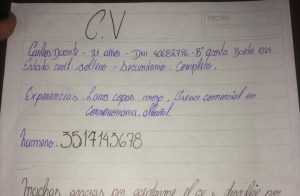 C.V
FECHA
Carlos Duarte - 21 años - DNI 40682786 - B° acosta Bonte 1024
Estado civil soltero - Secundario: Completo.
Experiencias: Lava copas, mozo, Curso comercial en
albañil
número: 3517143678
Muchas gracias por aceptarme el cv y